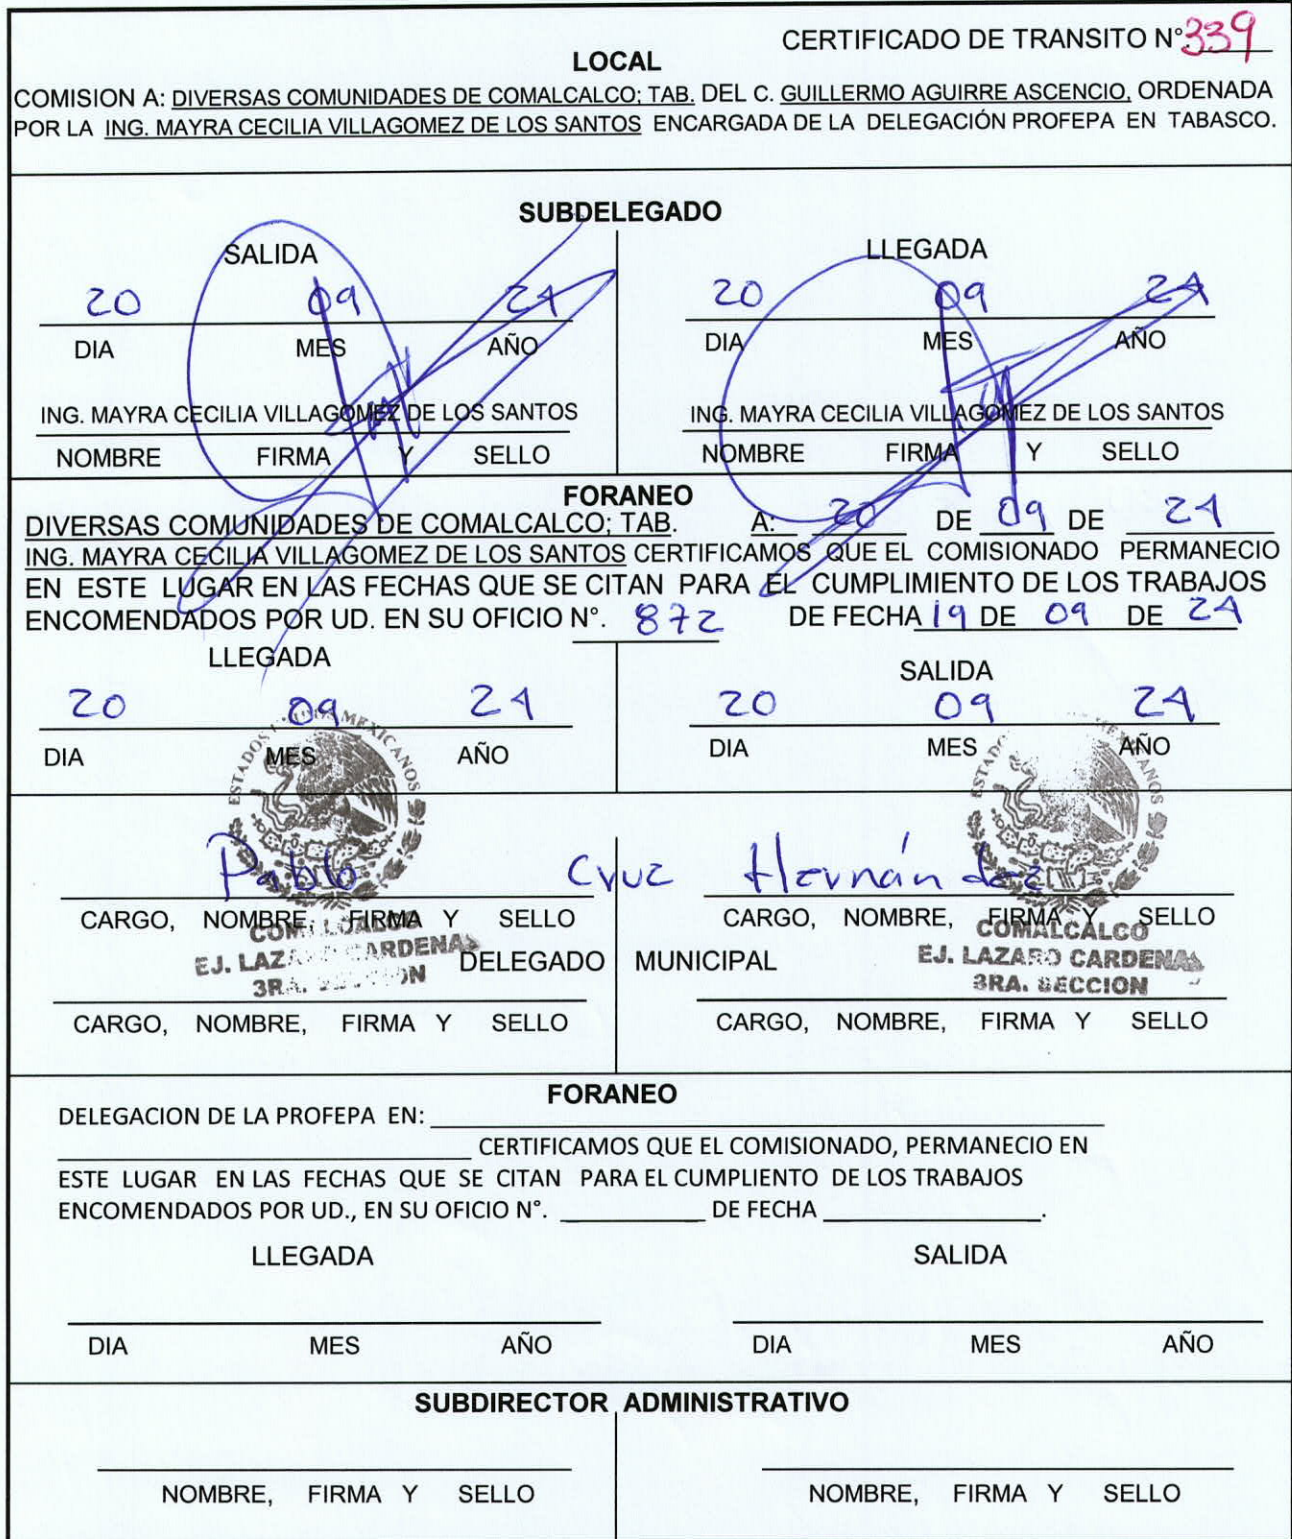 CERTIFICADO DE TRANSITO N° 339
LOCAL
COMISION A: DIVERSAS COMUNIDADES DE COMALCALCO; TAB. DEL C. GUILLERMO AGUIRRE ASCENCIO, ORDENADA
POR LA ING. MAYRA CECILIA VILLAGOMEZ DE LOS SANTOS ENCARGADA DE LA DELEGACIÓN PROFEPA EN TABASCO.
SUBDELEGADO
SALIDA LLEGADA
20 09 24 20 09 24
DIA MES AÑO DIA MES AÑO
ING. MAYRA CECILIA VILLAGOMEZ DE LOS SANTOS ING. MAYRA CECILIA VILLAGOMEZ DE LOS SANTOS
NOMBRE FIRMA Y SELLO NOMBRE FIRMA Y SELLO
FORANEO
DIVERSAS COMUNIDADES DE COMALCALCO; TAB. A: 20 DE 09 DE 24
ING. MAYRA CECILIA VILLAGOMEZ DE LOS SANTOS CERTIFICAMOS QUE EL COMISIONADO PERMANECIO
EN ESTE LUGAR EN LAS FECHAS QUE SE CITAN PARA EL CUMPLIMIENTO DE LOS TRABAJOS
ENCOMENDADOS POR UD. EN SU OFICIO N°. 872 DE FECHA 19 DE 09 DE 24
LLEGADA SALIDA
20 09 24 20 09 24
DIA MES AÑO DIA MES AÑO
ESTADOS UNIDOS MEXICANOS
Pablo Cruz Hernández
CARGO, NOMBRE, FIRMA Y SELLO CARGO, NOMBRE, FIRMA Y SELLO
COMALCALCO COMALCALCO
EJ. LAZARO CARDENAS EJ. LAZARO CARDENAS
DELEGADO MUNICIPAL
3RA. SECCION 3RA. SECCION
CARGO, NOMBRE, FIRMA Y SELLO CARGO, NOMBRE, FIRMA Y SELLO
FORANEO
DELEGACION DE LA PROFEPA EN:
CERTIFICAMOS QUE EL COMISIONADO, PERMANECIO EN
ESTE LUGAR EN LAS FECHAS QUE SE CITAN PARA EL CUMPLIENTO DE LOS TRABAJOS
ENCOMENDADOS POR UD., EN SU OFICIO N°. DE FECHA .
LLEGADA SALIDA
DIA MES AÑO DIA MES AÑO
SUBDIRECTOR ADMINISTRATIVO
NOMBRE, FIRMA Y SELLO NOMBRE, FIRMA Y SELLO